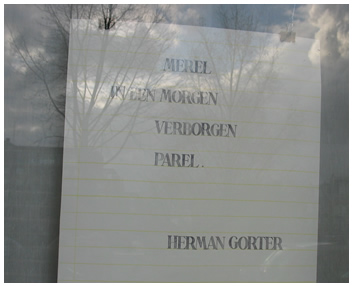 MEREL
IN EEN MORGEN
VERBORGEN
PAREL.
HERMAN GORTER